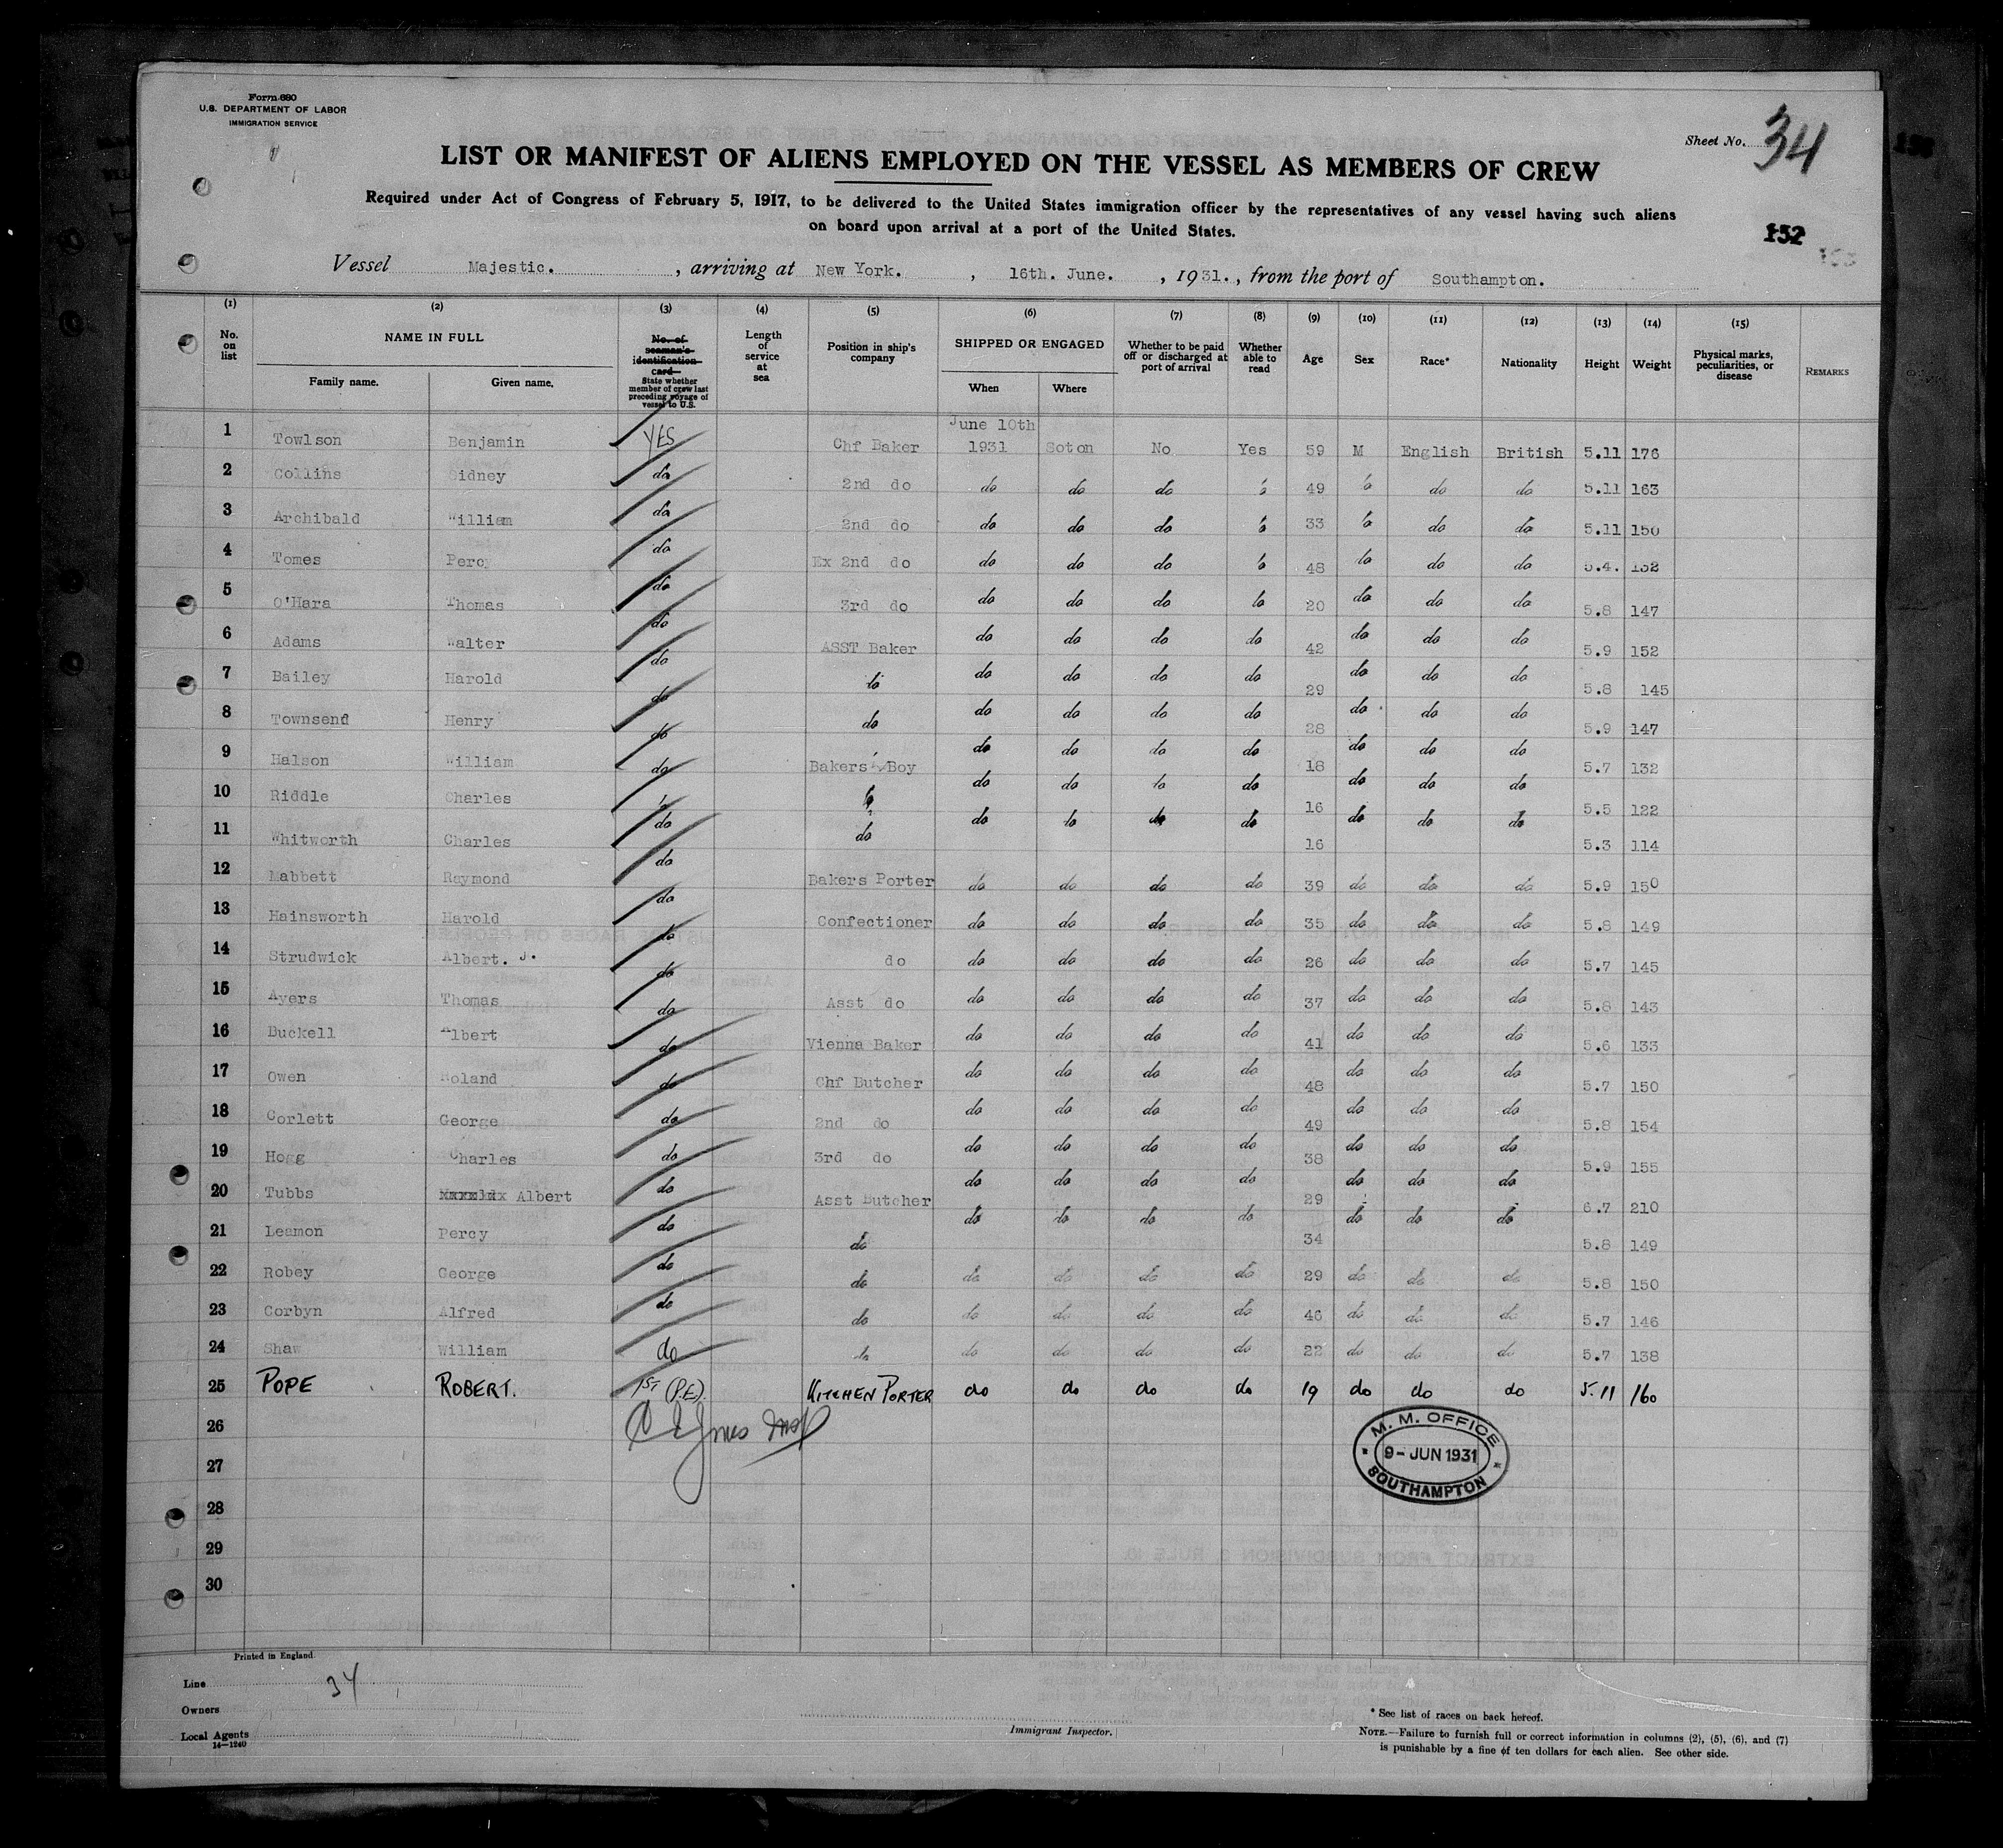 Form 680
U.S. DEPARTMENT OF LABOR
IMMIGRATION SERVICE
Sheet No. 34
LIST OR MANIFEST OF ALIENS EMPLOYED ON THE VESSEL AS MEMBERS OF CREW
Required under Act of Congress of February 5, 1917, to be delivered to the United States immigration officer by the representatives of any vessel having such aliens
on board upon arrival at a port of the United States.
152
Vessel Majestic. , arriving at New York. , 16th. June. , 1931. , from the port of Southampton.
(1) (2) (3) (4) (5) (6) (7) (8) (9) (10) (11) (12) (13) (14) (15)
No. on list NAME IN FULL Family name. Given name. No. of seaman's identification card State whether member of crew last preceding voyage of vessel to U.S. Length of service at sea Position in ship's company SHIPPED OR ENGAGED When Where Whether to be paid off or discharged at port of arrival Whether able to read Age Sex Race* Nationality Height Weight Physical marks, peculiarities, or disease REMARKS
1 Towlson Benjamin YES Chf Baker June 10th 1931 Soton No Yes 59 M English British 5.11 176
2 Collins Sidney do 2nd do do do do do 49 do do do 5.11 163
3 Archibald William do 2nd do do do do do 33 do do do 5.11 150
4 Tomes Percy do Ex 2nd do do do do do 48 do do do 5.4. 132
5 O'Hara Thomas do 3rd do do do do do 20 do do do 5.8 147
6 Adams Walter do ASST Baker do do do do 42 do do do 5.9 152
7 Bailey Harold do do do do do do 29 do do do 5.8 145
8 Townsend Henry do do do do do do 28 do do do 5.9 147
9 Halson William do Bakers Boy do do do do 18 do do do 5.7 132
10 Riddle Charles do do do do do do 16 do do do 5.5 122
11 Whitworth Charles do do do do do do 16 do do do 5.3 114
12 Mabbett Raymond do Bakers Porter do do do do 39 do do do 5.9 150
13 Hainsworth Harold do Confectioner do do do do 35 do do do 5.8 149
14 Strudwick Albert. J. do do do do do do 26 do do do 5.7 145
15 Ayers Thomas do Asst do do do do do 37 do do do 5.8 143
16 Buckell Albert do Vienna Baker do do do do 41 do do do 5.6 133
17 Owen Roland do Chf Butcher do do do do 48 do do do 5.7 150
18 Corlett George do 2nd do do do do do 49 do do do 5.8 154
19 Hogg Charles do 3rd do do do do do 38 do do do 5.9 155
20 Tubbs Albert do Asst Butcher do do do do 29 do do do 6.7 210
21 Leamon Percy do do do do do do 34 do do do 5.8 149
22 Robey George do do do do do do 29 do do do 5.8 150
23 Corbyn Alfred do do do do do do 46 do do do 5.7 146
24 Shaw William do do do do do do 22 do do do 5.7 138
25 POPE ROBERT. 1ST (P.E). KITCHEN PORTER do do do do 19 do do do 5.11 160
26
27
28
29
30
M. M. OFFICE
9- JUN 1931
SOUTHAMPTON
Printed in England
Line 34
Owners
Local Agents
14—1240
Immigrant Inspector.
* See list of races on back hereof.
NOTE.—Failure to furnish full or correct information in columns (2), (5), (6), and (7)
is punishable by a fine of ten dollars for each alien. See other side.